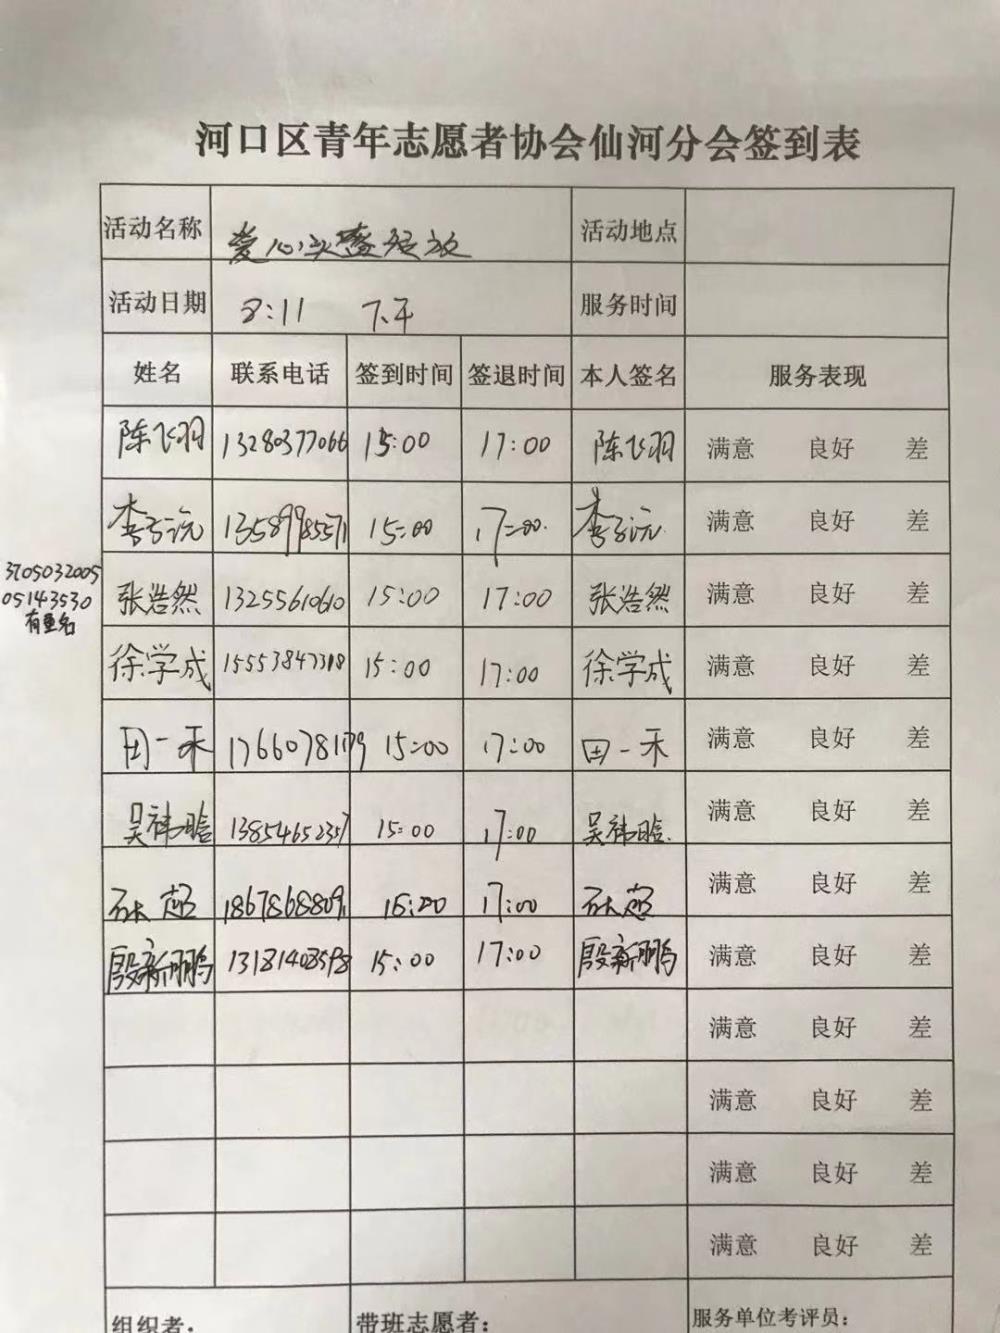 河口区青年志愿者协会仙河分会签到表
活动名称 爱心 发放 活动地点
活动日期 8:11 下午 服务时间
姓名 联系电话 签到时间 签退时间 本人签名 服务表现
陈飞羽 13280377066 15:00 17:00 陈飞羽 满意 良好 差
李子沅 13589985571 15:00 17:00. 李子沅 满意 良好 差
3705032005
05143530
有重名
张浩然 13255610610 15:00 17:00 张浩然 满意 良好 差
徐学成 15553847318 15:00 17:00 徐学成 满意 良好 差
田一禾 17660781179 15:00 17:00 田一禾 满意 良好 差
吴祎晗 13854652357 15:00 17:00 吴祎晗. 满意 良好 差
石大超 18678688091 15:20 17:00 石大超 满意 良好 差
殷新鹏 13181403598 15:00 17:00 殷新鹏 满意 良好 差
满意 良好 差
满意 良好 差
满意 良好 差
满意 良好 差
组织者: 带班志愿者: 服务单位考评员: